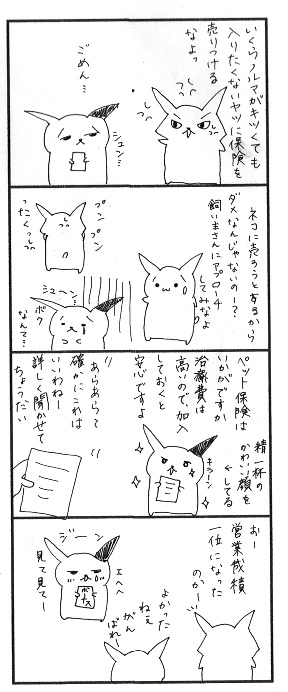 いくらノルマがキツくても
入りたくないヤツに保険を
売りつける
なよっ
ごめん…
シュン…
ネコに売ろうとするから
ダメなんじゃないのー?
飼い主さんにアプローチ
してみなよ
プンプン
ったくっ
シューン…
ボク
なんて…
ペット保険は
いかがですか
治療費は
高いので、加入
しておくと
安心ですよ
精一杯の
かわいい顔を
してる
キラーン
あらあらー
確かにこれは
いいわねー
詳しく聞かせて
ちょうだい
おー
営業成績
一位になった
のかー…
ジーン
エヘヘ
ボーナス
見て見てー
よかった
ねぇ
がん
ばれー